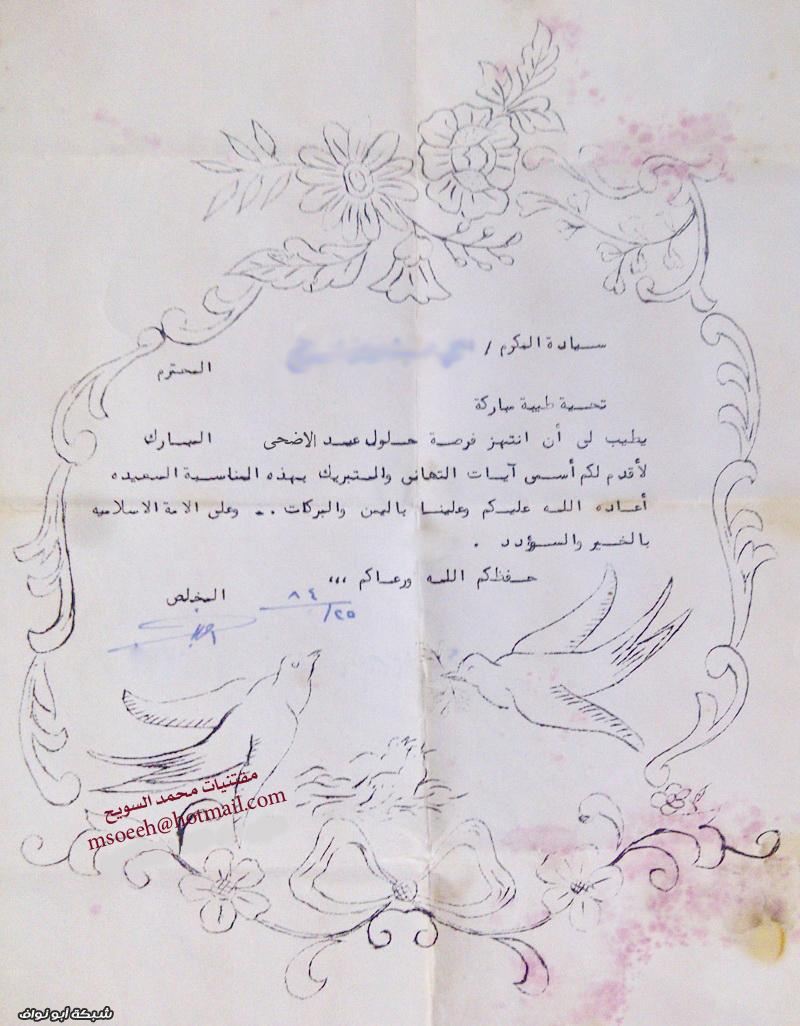 سيادة المكرم /
المحترم
تحية طيبة مباركة
يطيب لى أن انتهز فرصة حلول عيد الاضحى المبارك
لأقدم لكم أسمى آيات التهانى والتبريك بهذه المناسبة السعيده
أعاده الله عليكم وعلينا باليمن والبركات .. وعلى الامة الاسلاميه
بالخير والسؤدد .
حفظكم الله ورعاكم ,,,
المخلص
٨٤
/٢٥
مقتنيات محمد السويح
msoeeh@hotmail.com
شبكة أبو نواف